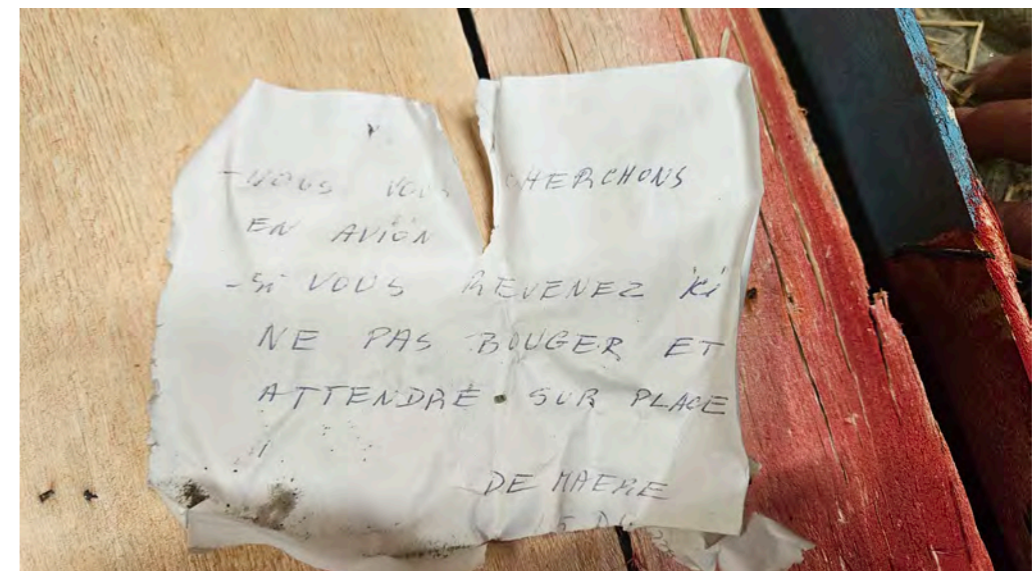 - NOUS VOUS CHERCHONS
EN AVION
- Si VOUS REVENEZ ici
NE PAS BOUGER ET
ATTENDRE SUR PLACE
!
DE MAERE